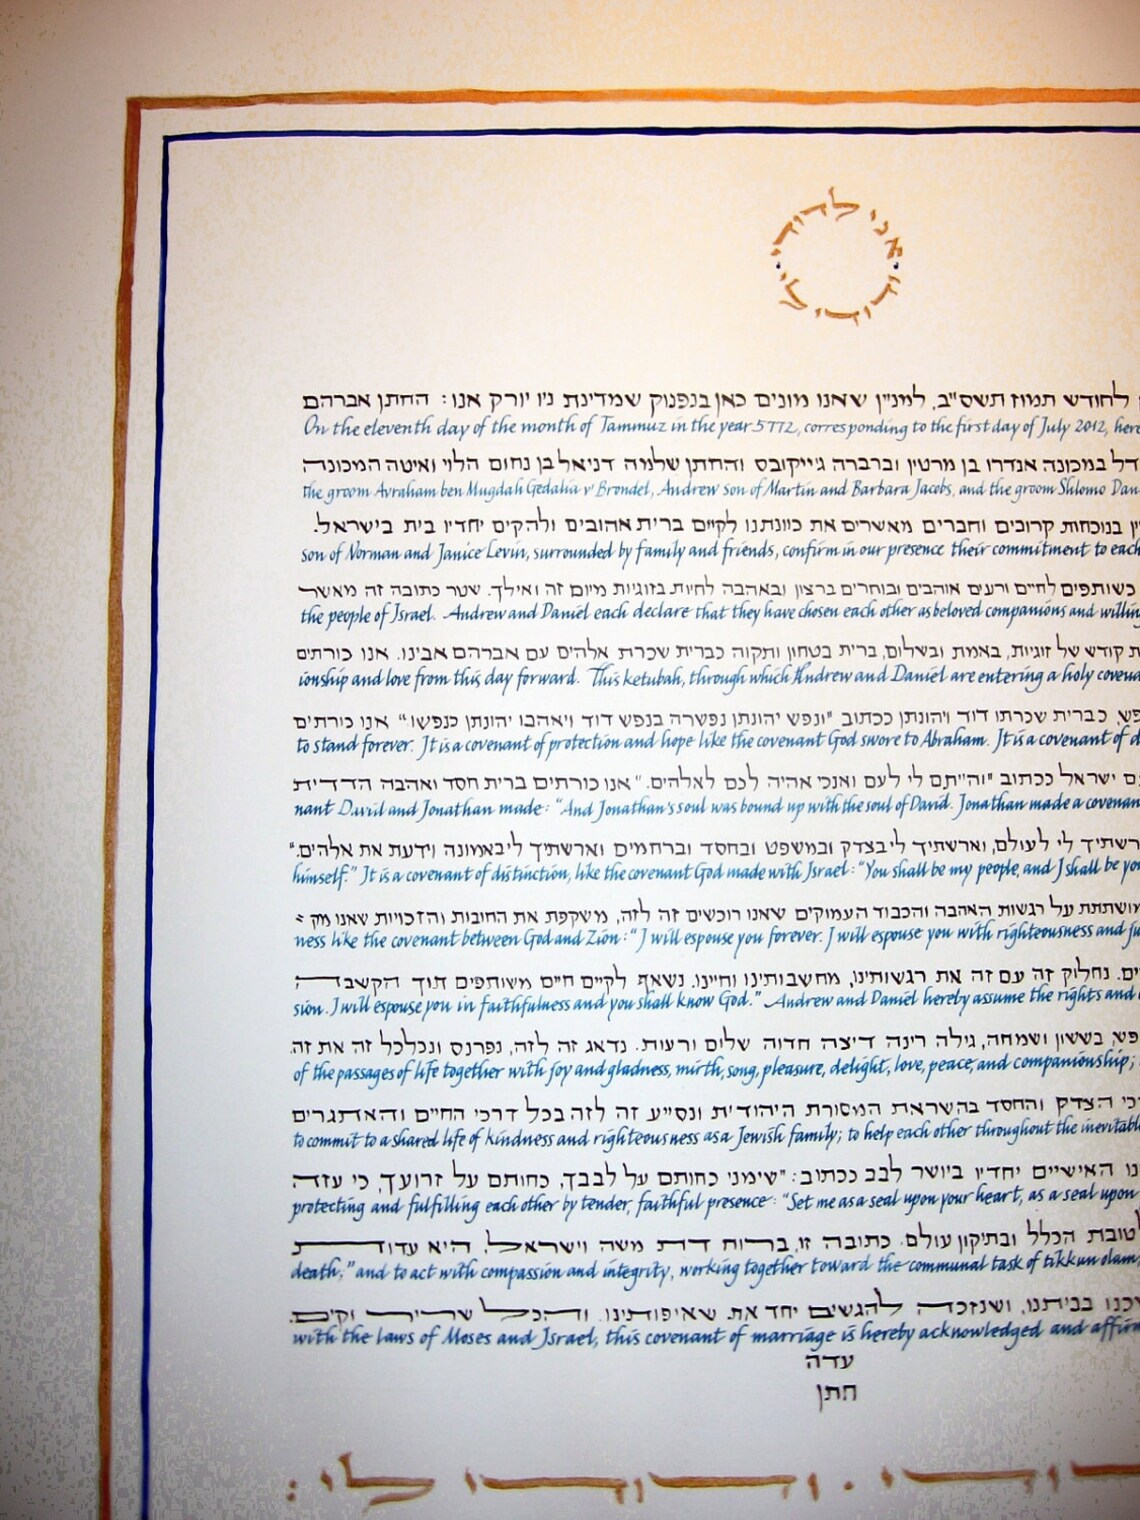 אני לדודי
ודודי לי
לחודש תמוז תשס"ב, למנין שאנו מונים כאן בנפנוק שמדינת ניו יורק אנו: החתן אברהם
On the eleventh day of the month of Tammuz in the year 5772, corresponding to the first day of July 2012, here
במכונה אנדרו בן מרטין וברברה ג'ייקובס והחתן שלמה דניאל בן נחום הלוי ואיטה המכונה
the groom Avraham ben Mugdah Gedalia v' Brondel, Andrew son of Martin and Barbara Jacobs, and the groom Shlomo Dan
בנוכחות קרובים וחברים מאשרים את כוונתנו לקיים ברית אהובים ולהקים יחדיו בית בישראל.
son of Norman and Janice Levin, surrounded by family and friends, confirm in our presence their commitment to each
כשותפים לחיים ורעים אוהבים ובוחרים ברצון ובאהבה לחיות בזוגיות מיום זה ואילך. שטר כתובה זה מאשר
the people of Israel. Andrew and Daniel each declare that they have chosen each other as beloved companions and willing
קודש של זוגיות, באמת ובשלום, ברית בטחון ותקוה כברית שכרת אלהים עם אברהם אבינו. אנו כורתים
ionship and love from this day forward. This ketubah, through which Andrew and Daniel are entering a holy covena
כברית שכרתו דוד ויהונתן ככתוב "ונפש יהונתן נפשרה בנפש דוד ויאהבו יהונתן כנפשו." אנו כורתים
to stand forever. It is a covenant of protection and hope like the covenant God swore to Abraham. It is a covenant of d
ישראל ככתוב "והייתם לי לעם ואנכי אהיה לכם לאלהים." אנו כורתים ברית חסד ואהבה הדדית
nant David and Jonathan made: "And Jonathan's soul was bound up with the soul of David. Jonathan made a covenan
לי לעולם, וארשתיך לי בצדק ובמשפט ובחסד וברחמים וארשתיך לי באמונה וידעת את אלהים."
himself." It is a covenant of distinction, like the covenant God made with Israel: "You shall be my people, and I shall be you
מושתתת על רגשות האהבה והכבוד העמוקים שאנו רוכשים זה לזה, משקפת את החובות והזכויות שאנו מק
ness like the covenant between God and Zion: "I will espouse you forever. I will espouse you with righteousness and ju
נחלוק זה עם זה את רגשותינו, מחשבותינו וחיינו. נשאף לקיים חיים משותפים תוך הקשבה
sion. I will espouse you in faithfulness and you shall know God." Andrew and Daniel hereby assume the rights and
בששון ושמחה, גילה רינה דיצה חדוה שלום ורעות. נדאג זה לזה, נפרנס ונכלכל זה את זה.
of the passages of life together with joy and gladness, mirth, song, pleasure, delight, love, peace, and companionship;
הצדק והחסד בהשראת המסורת היהודית ונסייע זה לזה בכל דרכי החיים והאתגרים
to commit to a shared life of kindness and righteousness as a Jewish family; to help each other throughout the inevitable
האישיים יחדיו ביושר לבב ככתוב: "שימני כחותם על לבבך, כחותם על זרועך, כי עזה
protecting and fulfilling each other by tender, faithful presence: "Set me as a seal upon your heart, as a seal upon
לטובת הכלל ובתיקון עולם. כתובה זו, ברוח דת משה וישראל, היא עדות
death;" and to act with compassion and integrity, working together toward the communal task of tikkun olam,
בביתנו, ושנזכה להגשים יחד את שאיפותינו. והכל שריר וקים.
with the laws of Moses and Israel, this covenant of marriage is hereby acknowledged and affirm
עדה
חתן
ודודי לי: